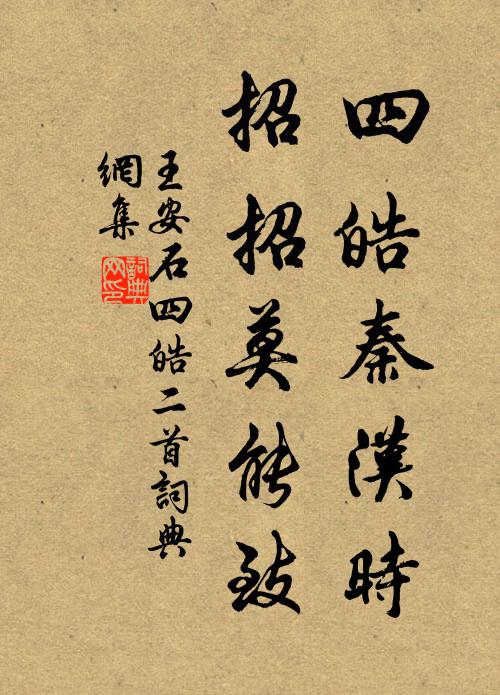 四皓秦漢時
招招莫能致
王安石四皓二首詞典
網集
詞典
网印